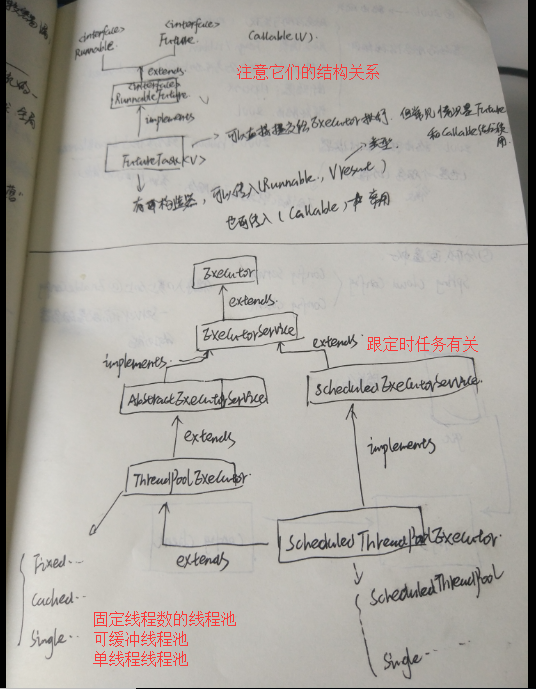 <interface>
Runnable
<interface>
Future
Callable(V).
extends
注意它们的结构关系
<interface>
RunnableFuture
implements
FutureTask<V>
可以直接提交给Executor执行. 但常见情况是Future
和Callable结合使用.
类型
有两构造器, 可以传入(Runnable, V result)
也可传入(Callable)
常用
Executor
extends
ExecutorService
implements
extends
跟定时任务有关
AbstractExecutorService
ScheduledExecutorService
extends
implements
ThreadPoolExecutor
extends
ScheduledThreadPoolExecutor
Fixed...
Cached...
Single...
固定线程数的线程池
可缓冲线程池
单线程线程池
ScheduledThreadPool
Single...